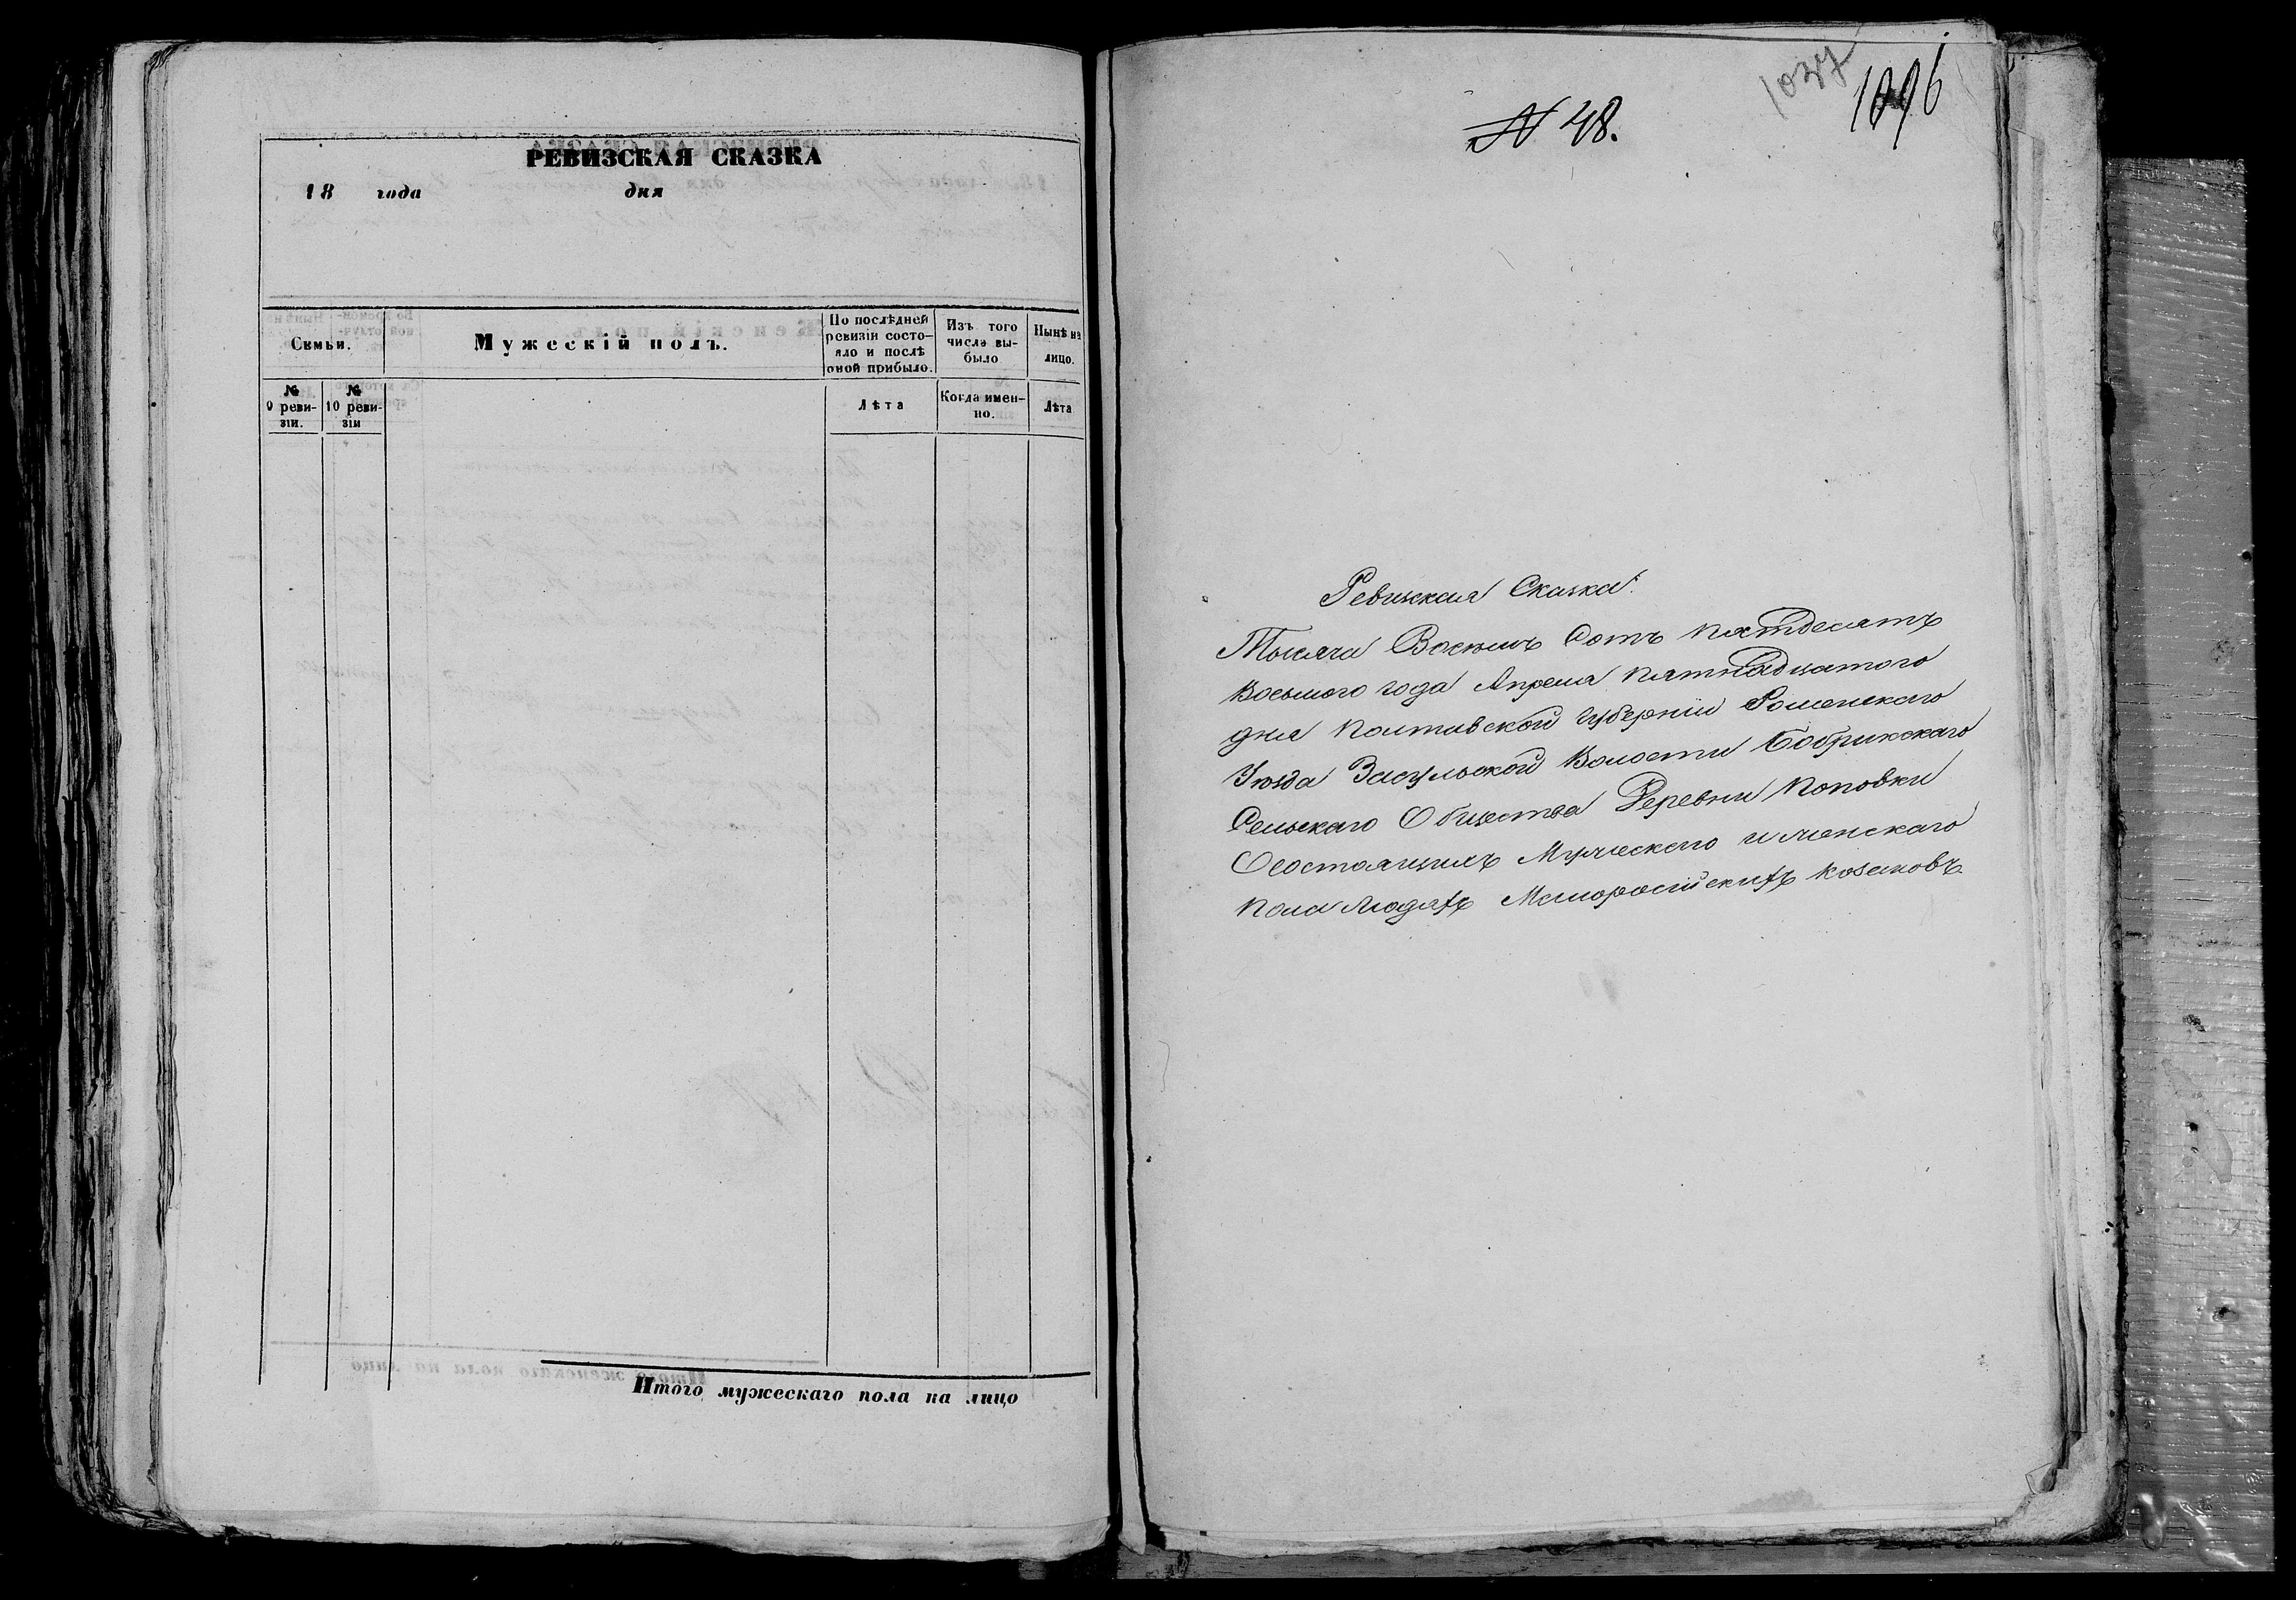 РЕВИЗСКАЯ СКАЗКА
18 года дня
Семьи.
Мужескій полъ.
По послѣдней
ревизіи состо-
яло и послѣ
оной прибыло.
Изъ того
числа вы-
было
Нынѣ на
лицо.
№
9 реви-
зіи.
№
10 реви-
зіи
Лѣта
Когда имен-
но.
Лѣта
Итого мужескаго пола на лицо
N 48.
1037
1096
Ревизская Сказка.
Тысяча Восемь Сотъ пятдесятъ
Восьмого года Апреля пятнадцатого
дня Полтавской Губерніи Роменскаго
Уѣзда Засульской Волости Бобрикскаго
Сельскаго Общества Деревни Поповки
О состоящихъ Мужескаго и женскаго
пола людяхъ Малоросійскихъ козаковъ